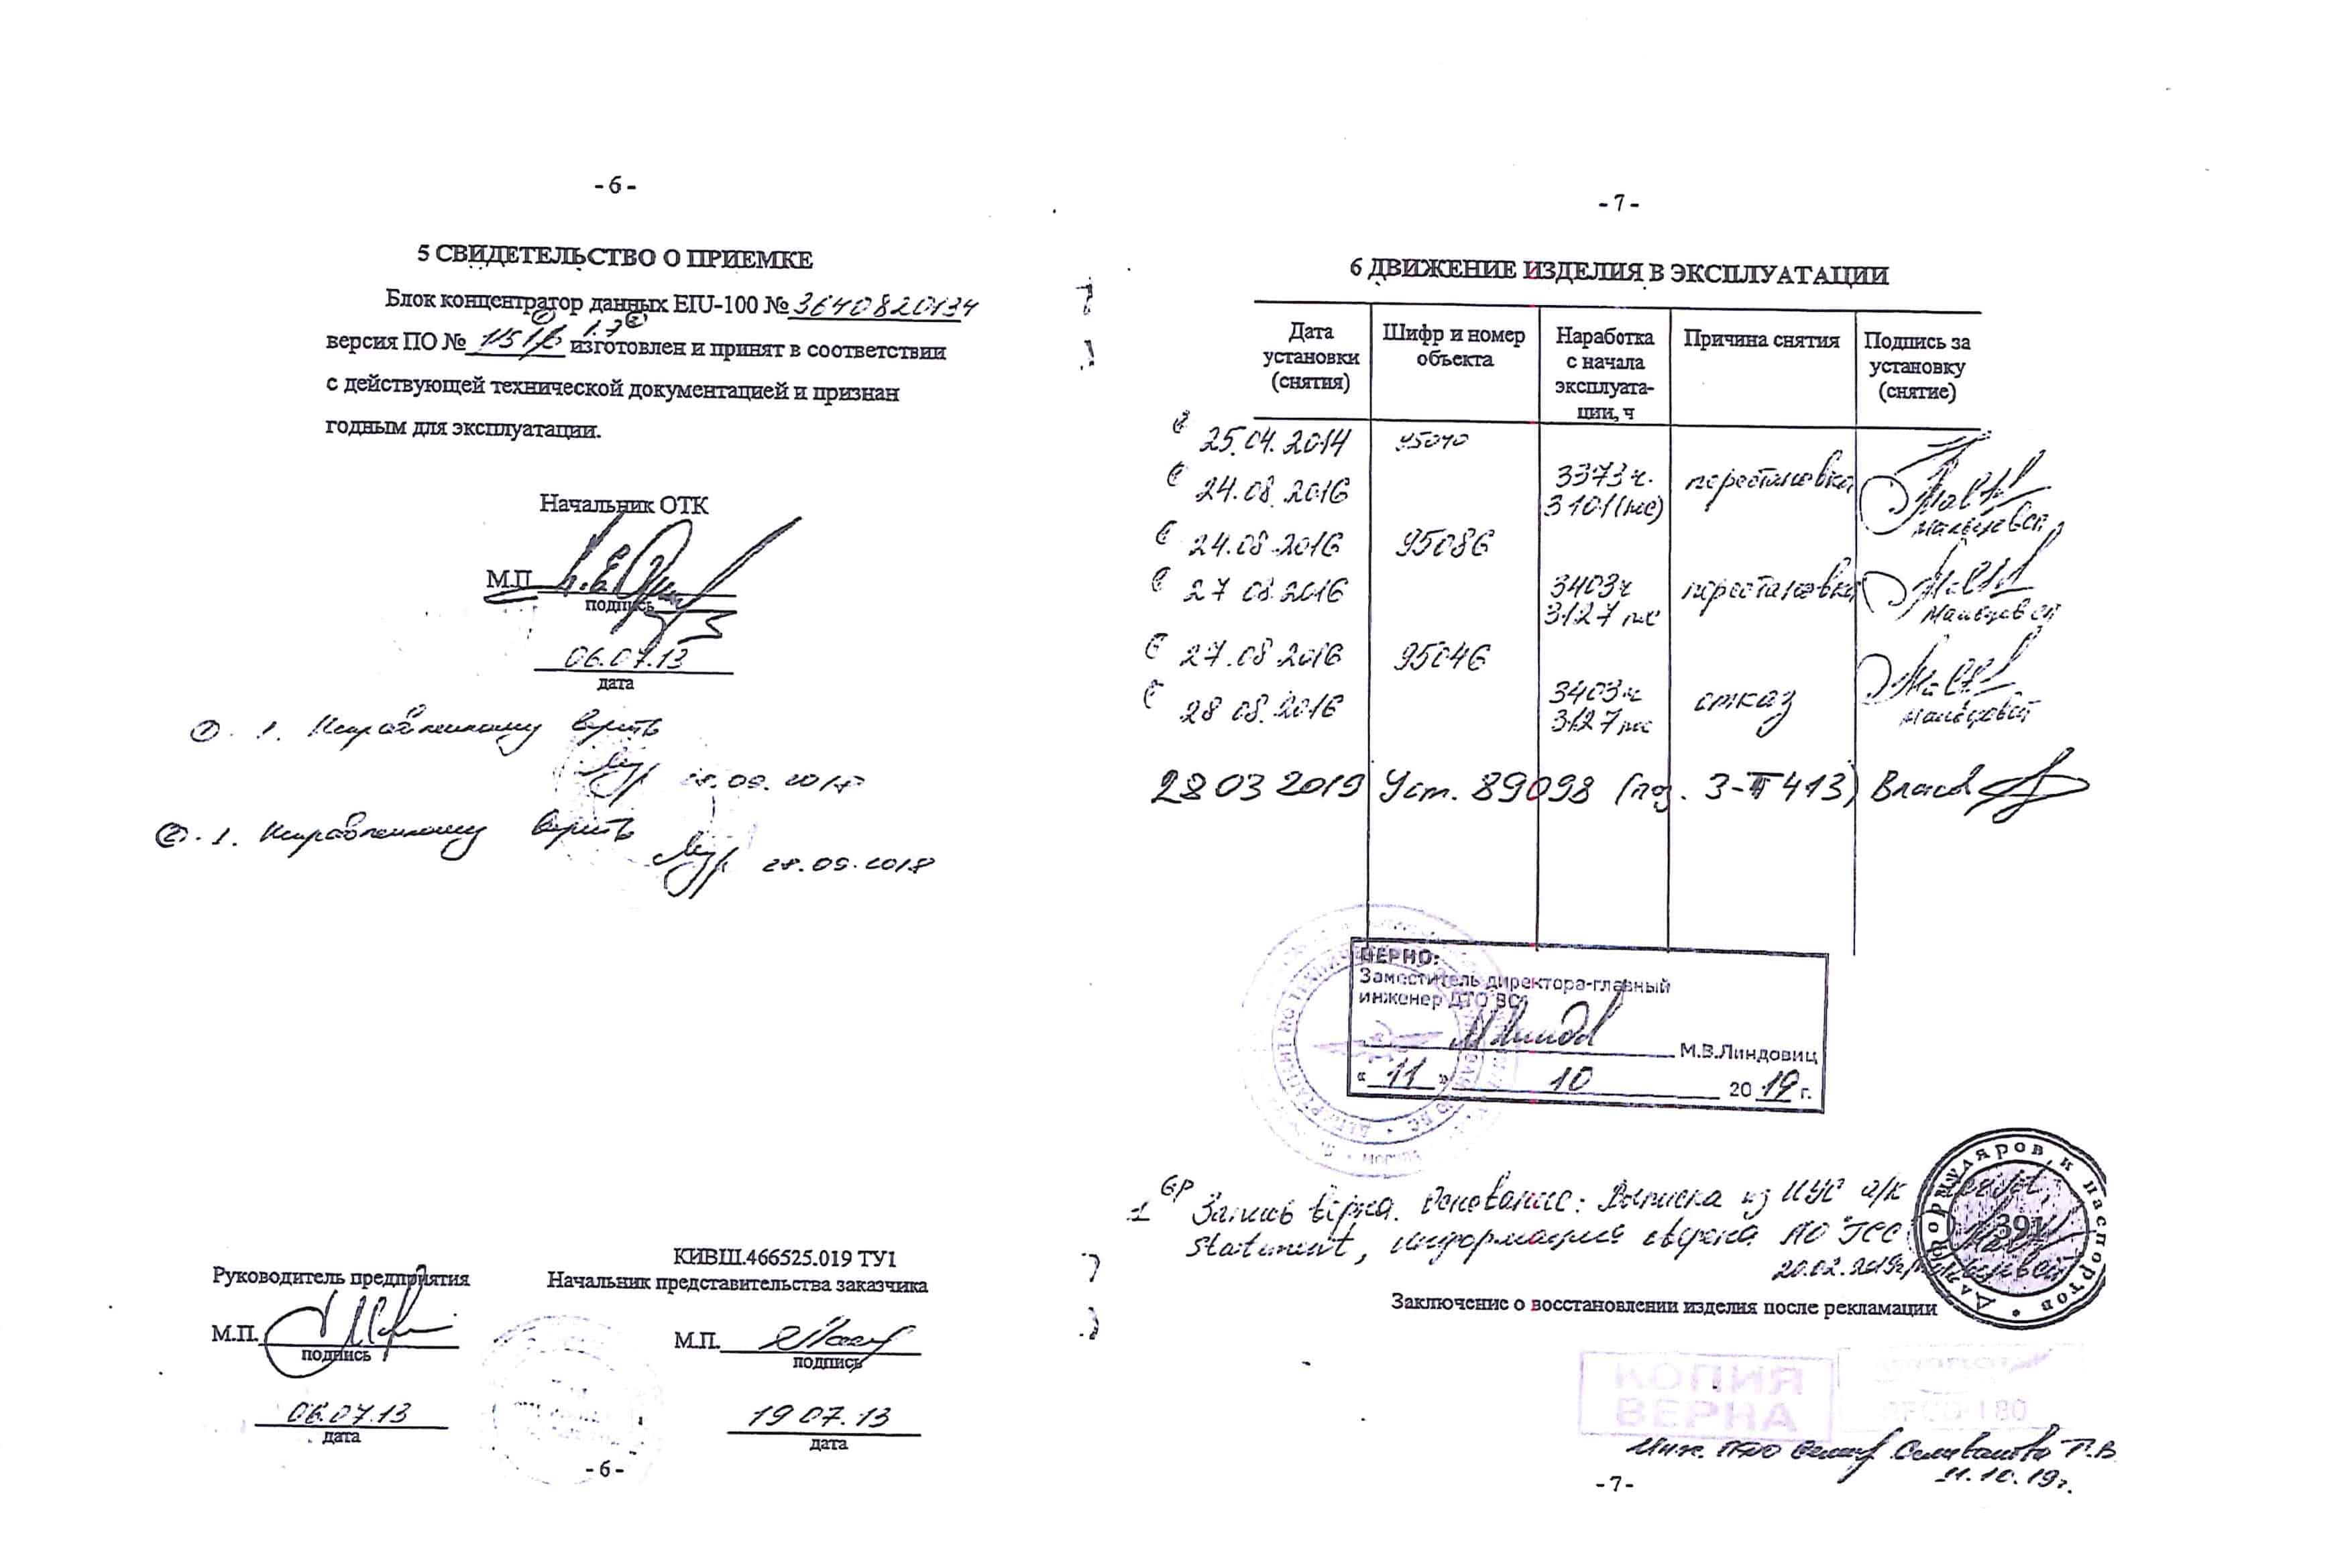 - 6 -
5 СВИДЕТЕЛЬСТВО О ПРИЕМКЕ
Блок концентратор данных EIU-100 № 3640820134
версия ПО № изготовлен и принят в соответствии
с действующей технической документацией и признан
годным для эксплуатации.
Начальник ОТК
М.П
подпись
06.07.13
дата
1. Исправленному верить
2. 1. Исправленному верить
28.09.2018
КИВШ.466525.019 ТУ1
Руководитель предприятия Начальник представительства заказчика
М.П. М.П.
подпись подпись
06.07.13 19 07.13
дата дата
- 6 -
- 7 -
6 ДВИЖЕНИЕ ИЗДЕЛИЯ В ЭКСПЛУАТАЦИИ
Дата установки (снятия) Шифр и номер объекта Наработка с начала эксплуата-ции, ч Причина снятия Подпись за установку (снятие)
25.04.2014 95040
24.08.2016 3373ч. 3101(пс) перестановка
24.08.2016 95086
27 08.2016 3403ч 3127 пс перестановка
27.08.2016 95046
28 08.2016 3403ч 3127 пс отказ
28 03 2019 Уст. 89098 (поз. 3-II 413) Власов
ВЕРНО:
Заместитель директора-главный
инженер ДТО ВС
М.В.Линдовиц
« 11 » 10 20 19 г.
1 Запись верна. Основание: Выписка из ИУС а/к
Statement, информация сверена АО "ГСС
20.02.2019
Для формуляров и паспортов
391
Заключение о восстановлении изделия после рекламации
КОПИЯ
ВЕРНА
Инж. Селиванова Т.В
11.10.19г.
- 7 -